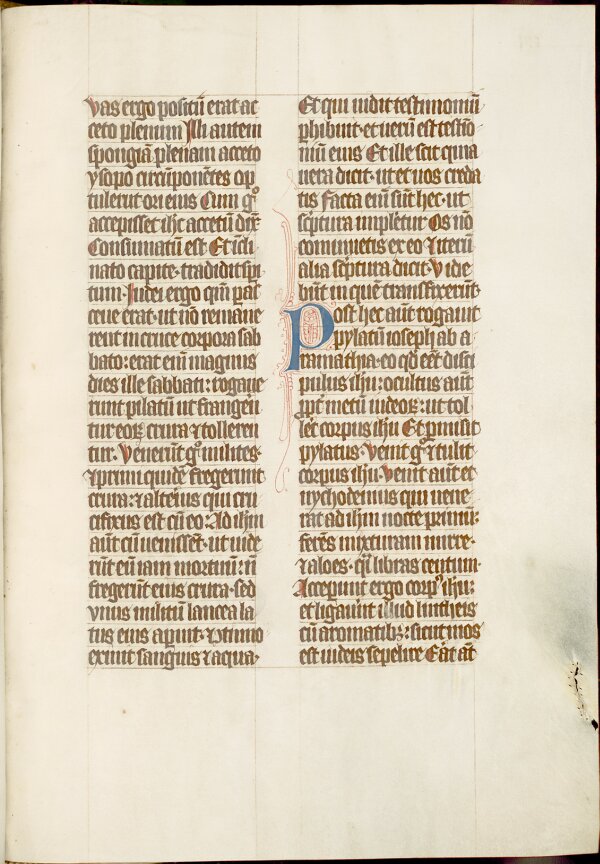 vas ergo positū erat ac
ceto plenum Illi autem
spongiā plenam aceto
ysopo circūponētes op
tulerut ori eius Cum gͦ
accepisset ihc acetū dix̄
Consumatū est Et icli
nato capite· tradidit spi
tum· Iudei ergo qm̄ paͬas
ceue erat· ut nō remane
rent in cruce corpora sab
bato: erat eni magnus
dies ille sabbati: rogaue
runt pilatū ut frangen
tur eoꝝ crura ⁊ tolleren
tur· Venerūt gͦ milites·
⁊ primi quidē fregerunt
crura: ⁊ alterius qui cru
cifixus est cū eo: Ad ihm
aūt cū uenissēt· ut uide
rūt eū iam mortuū: n̄
fregerūt eius crura· sed
vnus militū lancea la
tus eius aꝑuit· ⁊ ↄtinuo
exiuit sanguis ⁊ aqua·
Et qui uidit testimoniū
ꝑhibuit· et uerū est testio
niū eius Et ille scit quia
uera dicit· ut et uos creda
tis Facta eni sūt hec· ut
scͥptura impletur Os nō
comminuetis ex eo ⁊ iterū
alia scͥptura dicit· Vide
būt in quē transfixerūt·
Post hec aūt rogauit
pylatū ioseph ab a
ramathia· eo qd eēt disci
pulus ihu: ocultus aūt
ꝓpt̄ metū iudeoꝝ: ut tol
let corpus ihu Et ꝑmisit
pylatus· Venit gͦ ⁊ tulit
corpus ihu· Venit aūt et
nychodemus qui uene
rat ad ihm nocte primū:
ferēs mixturam mirre·
⁊ aloes· qͣsi libras centum·
Acceperunt ergo corpꝰ ihu:
et ligauūt illud lintheis
cū aromatibꝫ: sicut mos
est iudeis sepelire Erat āt